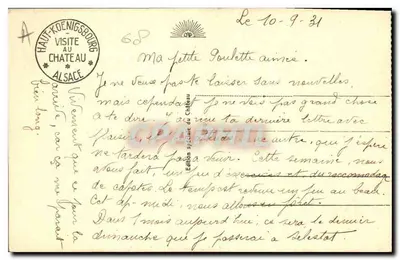 Le 10-9-31
A
68
HAUT-KOENIGSBOURG
VISITE
AU
CHATEAU
ALSACE
Ma petite Poulette aimée.
Je ne veux pas te laisser sans nouvelles
mais cependant je ne vois pas grand chose
à te dire. J'ai reçu ta dernière lettre avec
plaisir, une autre, que j'espère
ne tardera pas à venir. Cette semaine, nous
avons fait un peu d' et du raccommodage
de capotes. Le temps est revenu un peu au beau.
Cet ap. midi, nous allons en foret.
Dans 1 mois aujourd'hui, ce sera le dernier
dimanche que je passerai à Sélestat.
Vivement que ce jour là
arrive, car ça me parait
bien long.
Edition spéciale du Château